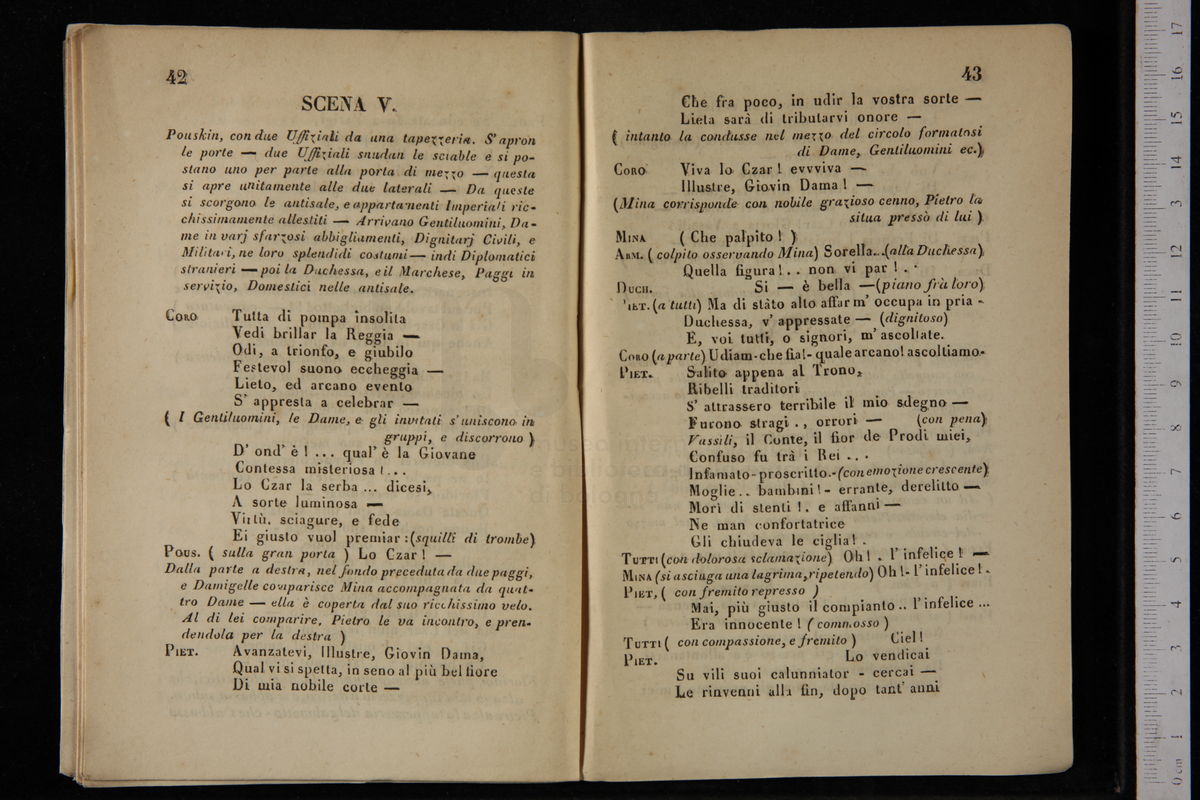 42
SCENA V.
Pouskin, con due Uffiziali da una tapezzeria. S'apron
le porte — due Uffiziali snudan le sciable e si po-
stano uno per parte alla porta di mezzo — questa
si apre unitamente alle due laterali — Da queste
si scorgono le antisale, e appartamenti Imperiali ric-
chissimamente allestiti — Arrivano Gentiluomini, Da-
me in varj sfarzosi abbigliamenti, Dignitarj Civili, e
Militari, ne loro splendidi costumi — indi Diplomatici
stranieri — poi la Duchessa, e il Marchese, Paggi in
servizio, Domestici nelle antisale.
CORO Tutta di pompa insolita
Vedi brillar la Reggia —
Odi, a trionfo, e giubilo
Festevol suono eccheggia —
Lieto, ed arcano evento
S' appresta a celebrar —
( I Gentiluomini, le Dame, e gli invitati s'uniscono in
gruppi, e discorrono )
D' ond' è ! ... qual' è la Giovane
Contessa misteriosa ! ...
Lo Czar la serba ... dicesi,
A sorte luminosa —
Virtù, sciagure, e fede
Ei giusto vuol premiar : (squilli di trombe)
POUS. ( sulla gran porta ) Lo Czar ! —
Dalla parte a destra, nel fondo preceduta da due paggi,
e Damigelle comparisce Mina accompagnata da quat-
tro Dame — ella è coperta dal suo ricchissimo velo.
Al di lei comparire, Pietro le va incontro, e pren-
dendola per la destra )
PIET. Avanzatevi, Illustre, Giovin Dama,
Qual vi si spetta, in seno al più bel fiore
Di mia nobile corte —
43
Che fra poco, in udir la vostra sorte —
Lieta sarà di tributarvi onore —
( intanto la condusse nel mezzo del circolo formatosi
di Dame, Gentiluomini ec.)
CORO Viva lo Czar ! evvviva —
Illustre, Giovin Dama ! —
(Mina corrisponde con nobile grazioso cenno, Pietro la
situa presso di lui )
MINA ( Che palpito ! )
ARM. ( colpito osservando Mina) Sorella...(alla Duchessa)
Quella figura ! . . non vi par ! . .
DUCH. Si — è bella — (piano frà loro)
PIET. (a tutti) Ma di stato alto affar m' occupa in pria -
Duchessa, v' appressate — (dignitoso)
E, voi tutti, o signori, m' ascoltate.
CORO (a parte) Udiam - che fia! - quale arcano! ascoltiamo.
PIET. Salito appena al Trono,
Ribelli traditori
S' attrassero terribile il mio sdegno —
Furono stragi . , orrori — (con pena)
Vassili, il Conte, il fior de Prodi miei,
Confuso fu trà i Rei . . .
Infamato - proscritto.- (con emozione crescente)
Moglie .. bambini ! - errante, derelitto —
Morì di stenti ! . e affanni —
Ne man confortatrice
Gli chiudeva le ciglia ! .
TUTTI (con dolorosa sclamazione) Oh ! . l' infelice ! —
MINA (si asciuga una lagrima, ripetendo) Oh ! - l' infelice ! .
PIET, ( con fremito represso )
Mai, più giusto il compianto .. l' infelice ...
Era innocente ! ( commosso )
TUTTI ( con compassione, e fremito ) Ciel !
PIET. Lo vendicai
Su vili suoi calunniator - cercai —
Le rinvenni alla fin, dopo tant' anni